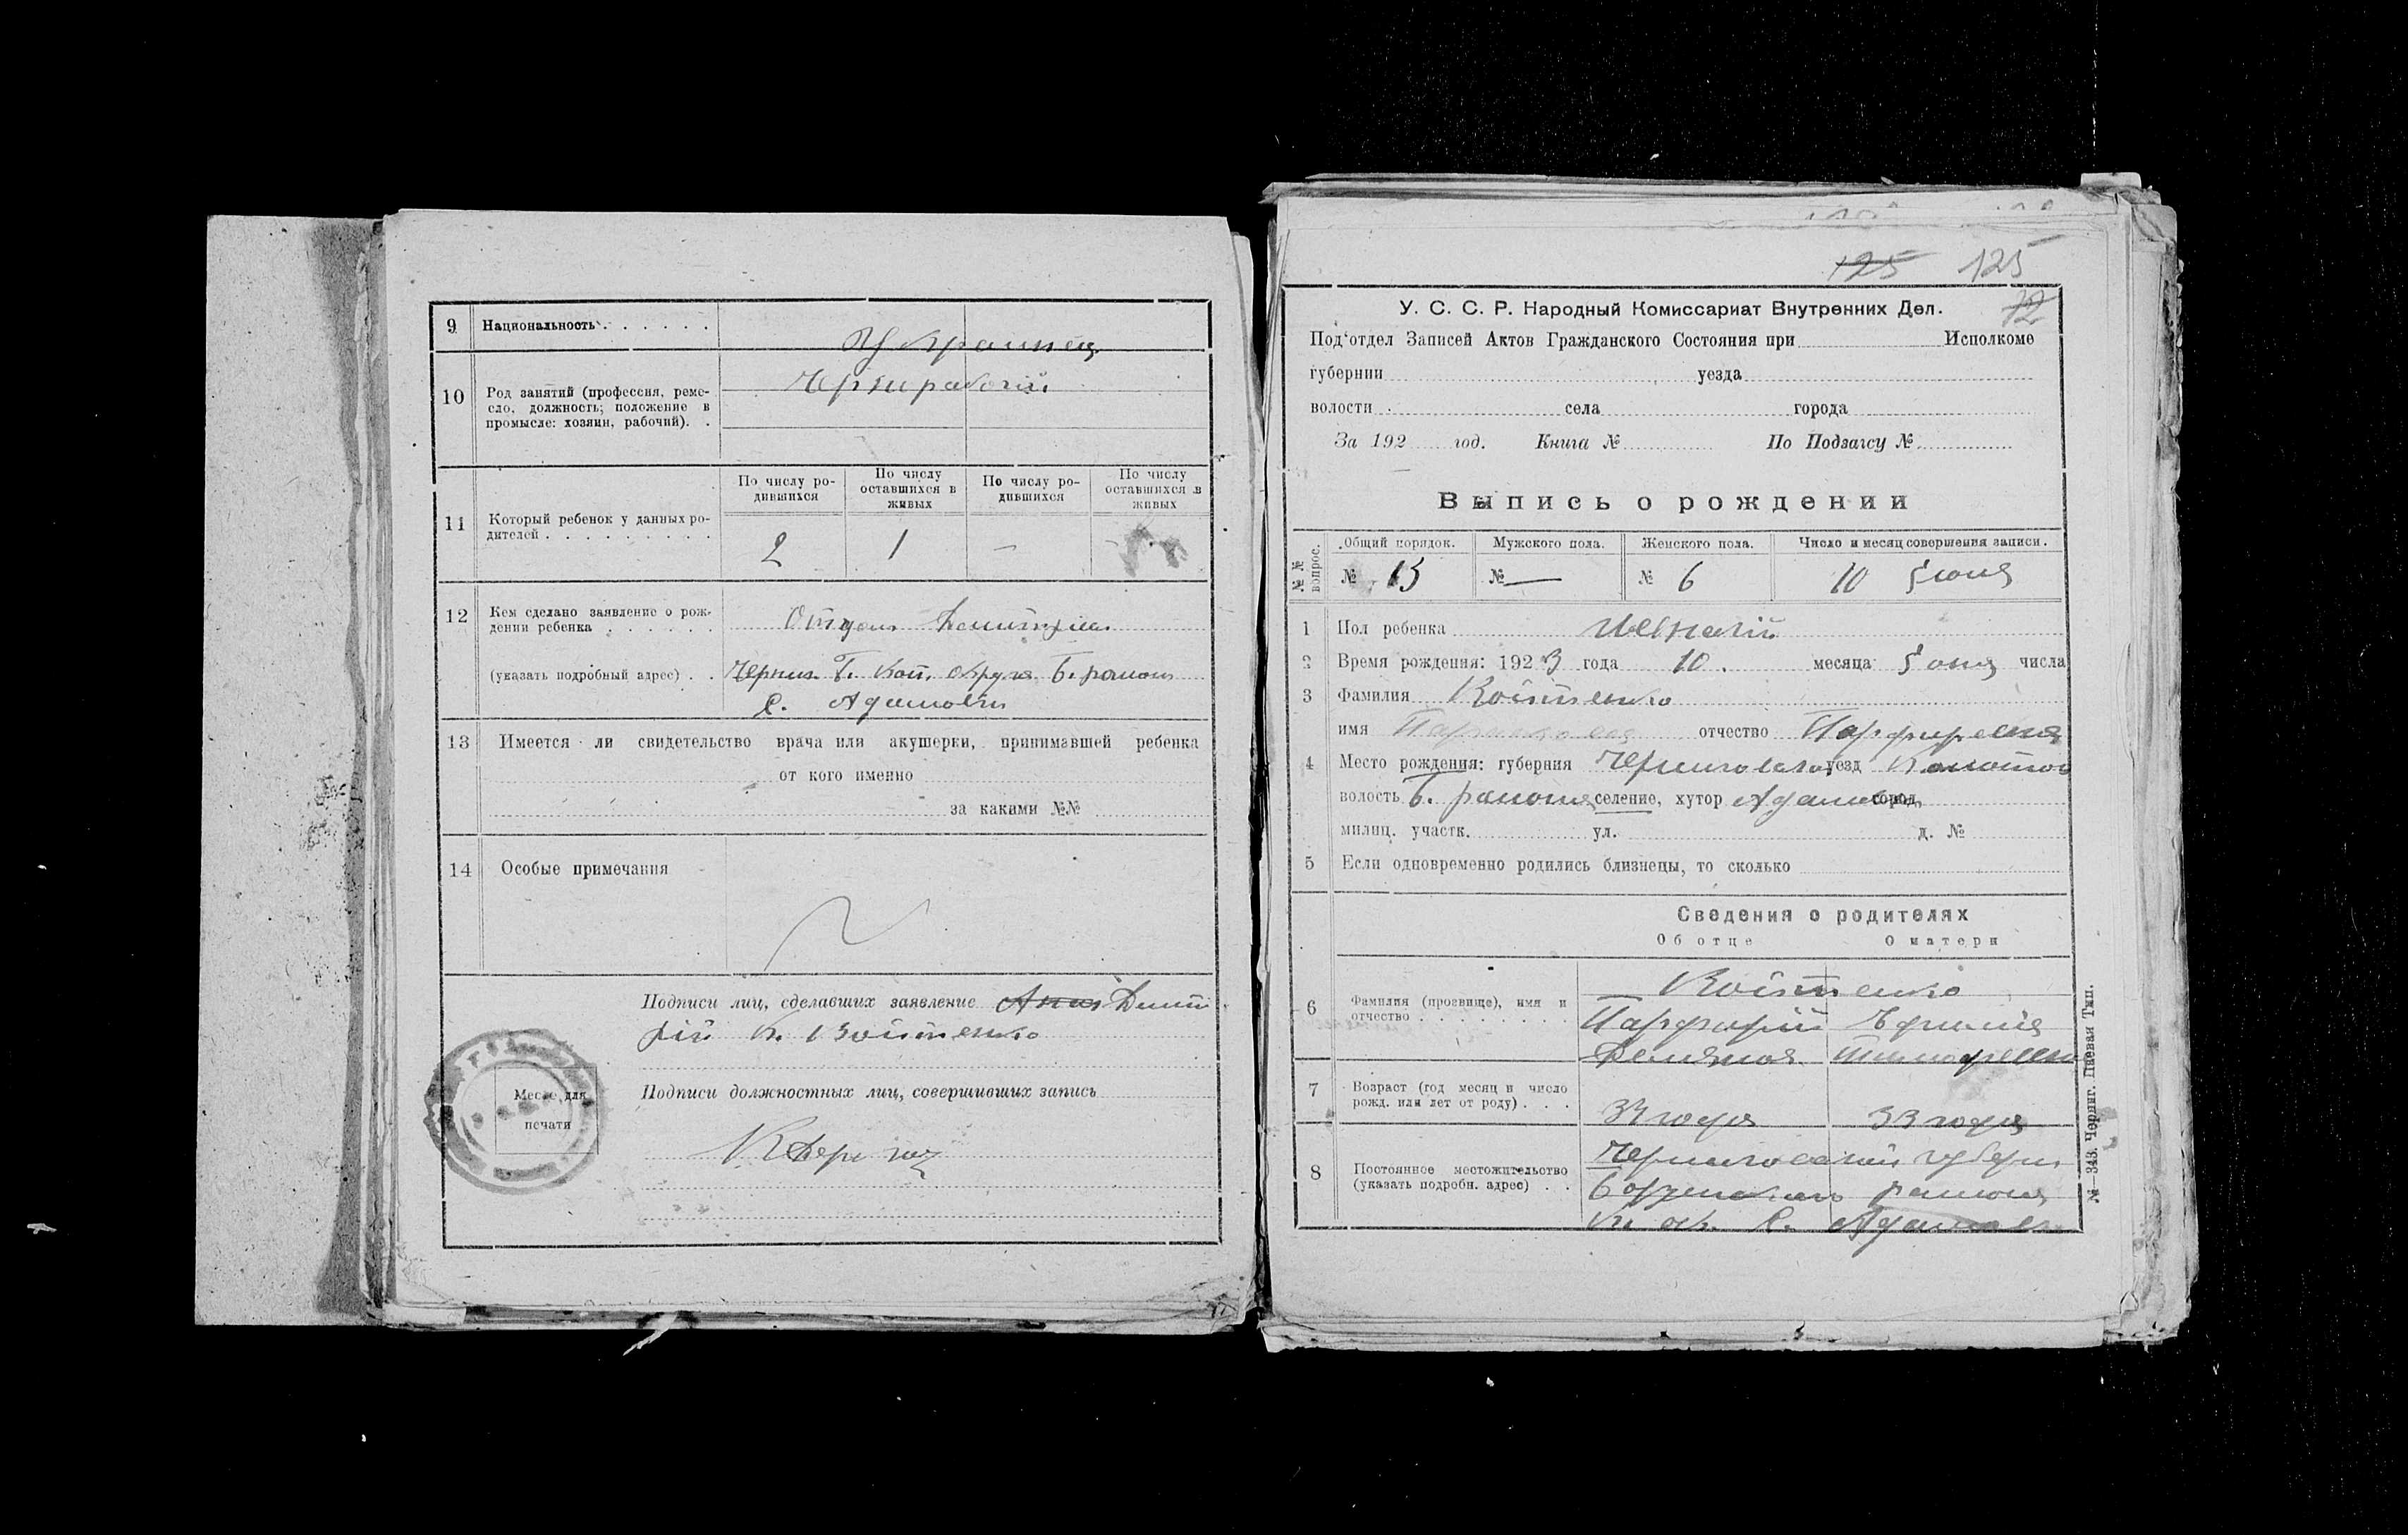 9 Национальность . . . . . .
Украинец
10 Род занятий (профессия, реме-
сло, должность; положение в
промысле: хозяин, рабочий). .
Чернорабочий
По числу ро-
дившихся
По числу
оставшихся в
живых
По числу ро-
дившихся
По числу
оставшихся в
живых
11 Который ребенок у данных ро-
дителей . . . . . . . . .
2 1 —
12 Кем сделано заявление о рож-
дении ребенка . . . . . .
(указать подробный адрес) . . Черниг. Г. Кон. округа Б. район
с. Адамовка
13 Имеется ли свидетельство врача или акушерки, принимавшей ребенка
от кого именно
за каками №№
14 Особые примечания
Подписи лиц, сделавших заявление Дмит
рій Войтенко
Место для
печати
Подписи должностных лиц, совершивших запись
125 125
72
У. С. С. Р. Народный Комиссариат Внутренних Дел.
Под'отдел Записей Актов Гражданского Состояния при Исполкоме
губернии уезда
волости села города
За 192 год. Книга № По Подзагсу №
Выпись о рождении
№№ вопрос.
Общий порядок. Мужского пола. Женского пола. Число и месяц совершения записи.
№ 15 № — № 6 10 Июня
1 Пол ребенка Женский
2 Время рождения: 1923 года 10. месяца Июня числа
3 Фамилия Войтенко
имя отчество Парфирьевна
4 Место рождения: губерния Черниговская уезд Конотоп
волость Б. района селение, хутор Адамовка город
милиц. участк. ул. д. №
5 Если одновременно родились близнецы, то сколько
Сведения о родителях
Об отце О матери
6 Фамилия (прозвище), имя и
отчество . . . . . . . .
Войтенко
Парфирий
7 Возраст (год месяц и число
рожд. или лет от роду) . . .
33 года 33 года
8 Постоянное местожительство
(указать подробн. адрес) . .
Черниговской губерн
района
Кон. ок. с. Адамовка
№—343. Черниг. Паевая Тип.